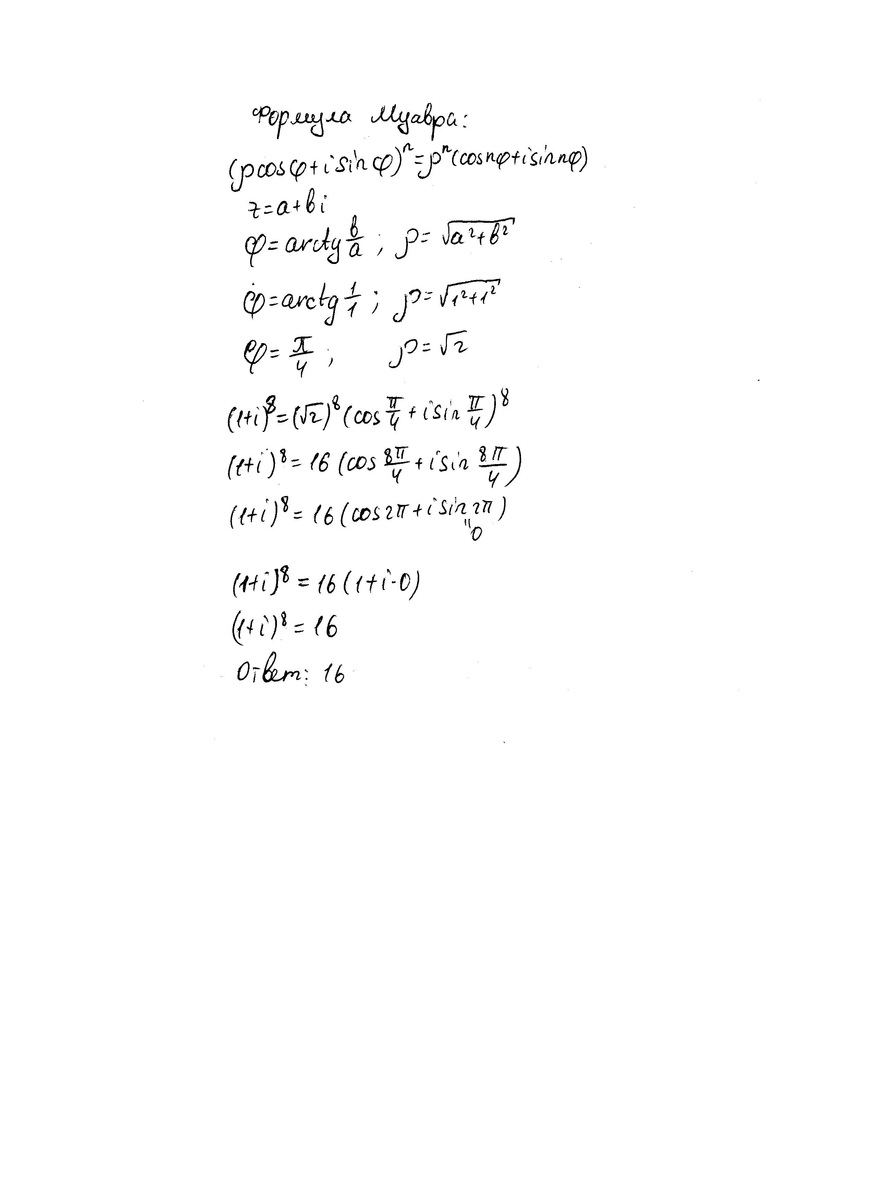 Формула Муавра:
(ρcosφ+isinφ)ⁿ=ρⁿ(cosnφ+isinnφ)
z=a+bi
φ=arctg b/a ; ρ=√(a²+b²)
φ=arctg 1/1 ; ρ=√(1²+1²)
φ= π/4 ; ρ=√2
(1+i)⁸=(√2)⁸(cos π/4 + isin π/4)⁸
(1+i)⁸= 16 (cos 8π/4 + isin 8π/4)
(1+i)⁸= 16 (cos2π+isin2π)
"0
(1+i)⁸= 16 (1+i·0)
(1+i)⁸= 16
Ответ: 16